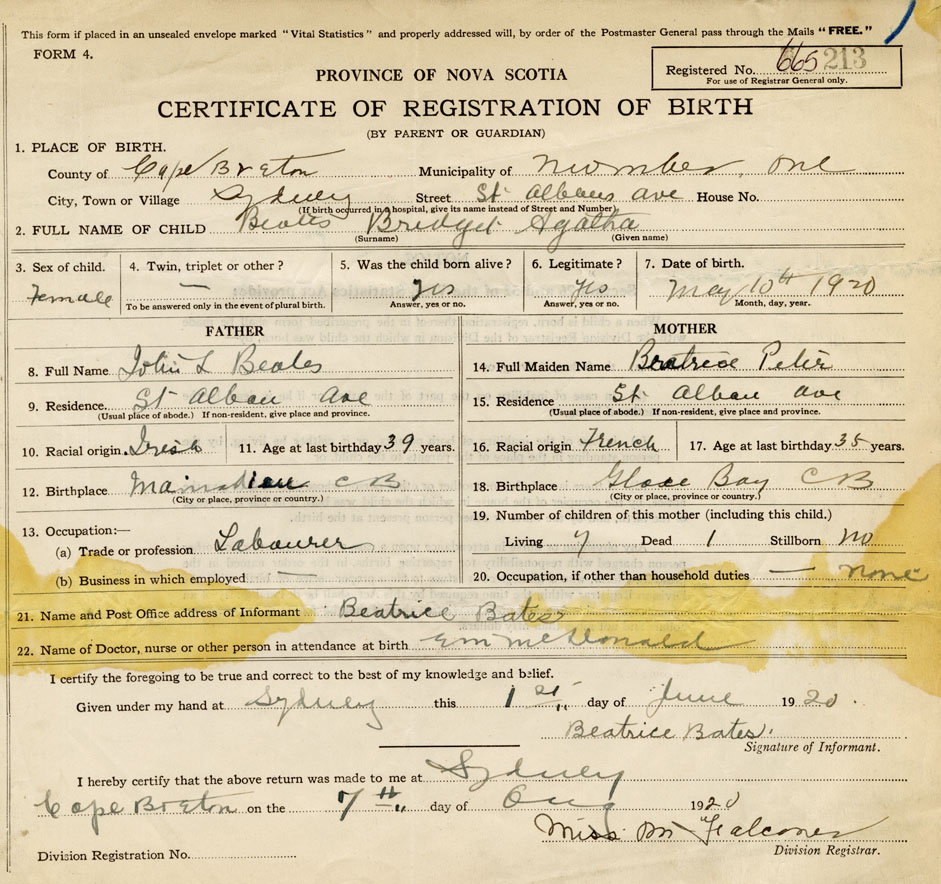 This form if placed in an unsealed envelope marked "Vital Statistics" and properly addressed will, by order of the Postmaster General pass through the Mails "FREE."
FORM 4.
Registered No. 665 213
For use of Registrar General only.
PROVINCE OF NOVA SCOTIA
CERTIFICATE OF REGISTRATION OF BIRTH
(BY PARENT OR GUARDIAN)
1. PLACE OF BIRTH.
County of Cape Breton Municipality of Nuomber one
City, Town or Village Sydney Street St Albans ave House No.
(If birth occurred in hospital, give its name instead of Street and Number)
2. FULL NAME OF CHILD Beates Bridget Agatha
(Surname) (Given name)
3. Sex of child. 4. Twin, triplet or other? 5. Was the child born alive? 6. Legitimate? 7. Date of birth.
Female — yes yes May 10th 1920
To be answered only in the event of plural birth. Answer, yes or no. Answer, yes or no. Month, day, year.
FATHER
8. Full Name John L Beates
9. Residence St Alban Ave
(Usual place of abode.) If non-resident, give place and province.
10. Racial origin Irish 11. Age at last birthday 39 years.
12. Birthplace Mainadieu C B
(City or place, province or country.)
13. Occupation:—
(a) Trade or profession Labourer
(b) Business in which employed —
MOTHER
14. Full Maiden Name Beatrice Peter
15. Residence St Alban ave
(Usual place of abode.) If non-resident, give place and province.
16. Racial origin French 17. Age at last birthday 35 years.
18. Birthplace Glace Bay C B
(City or place, province or country.)
19. Number of children of this mother (including this child.)
Living 7 Dead 1 Stillborn no
20. Occupation, if other than household duties — none
21. Name and Post Office address of Informant Beatrice Bates
22. Name of Doctor, nurse or other person in attendance at birth Em McDonald
I certify the foregoing to be true and correct to the best of my knowledge and belief.
Given under my hand at Sydney this 1 st day of June 1920.
Beatrice Bates
Signature of Informant.
I hereby certify that the above return was made to me at Sydney
Cape Breton on the 7 th day of Aug 1920
Miss M Falconer
Division Registrar.
Division Registration No.